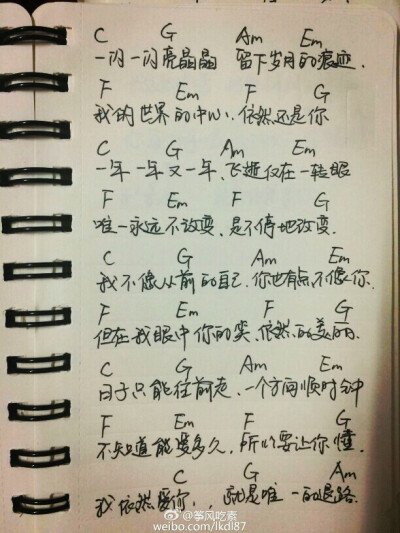 C G Am Em
一闪一闪亮晶晶 留下岁月的痕迹.
F Em F G
我的世界的中心、依然还是你
C G Am Em
一年一年又一年、飞逝仅在一转眼
F Em F G
唯一永远不改变、是不停地改变.
C G Am Em
我不像从前的自己.你也有点不像你.
F Em F G
但在我眼中你的笑.依然的美丽.
C G Am Em
日子只能往前走、一个方向顺时钟
F Em F G
不知道能要多久、所以要让你懂.
C G Am
我依然爱你、就是唯一的退路.
@筝风吃素
weibo.com/lkdl87